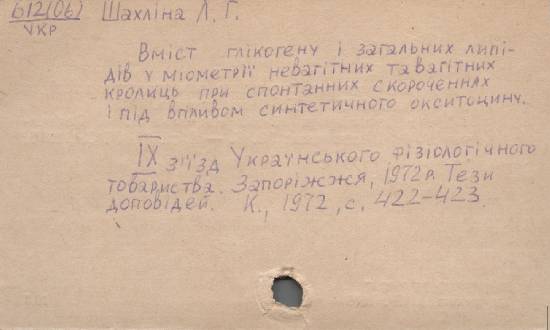 612(06) Шахліна Л. Г.
УКР
Вміст глікогену і загальних липі-
дів у міометрії невагітних та вагітних
кролиць при спонтанних скороченнях
і під впливом синтетичного окситоцину.
IX з'їзд Українського фізіологічного
товариства. Запоріжжя, 1972 р. Тези
доповідей. К., 1972, с. 422-423